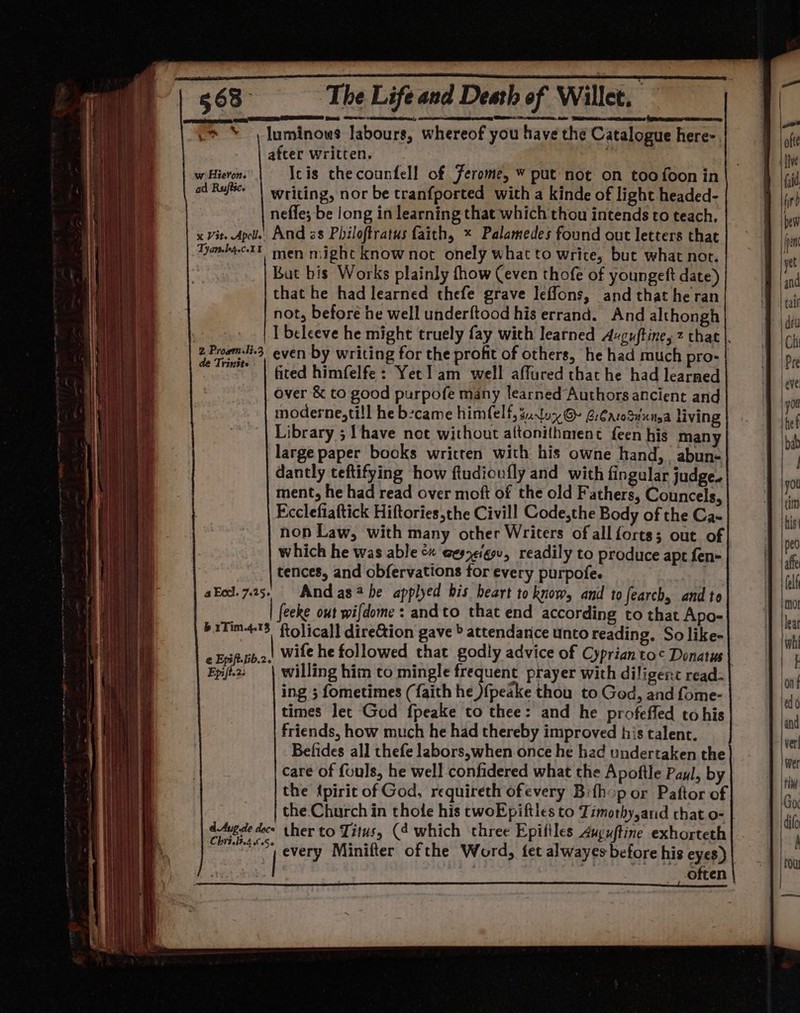 568 The Life and Death of Willet.
luminows labours, whereof you have the Catalogue here-
after written.
w Hieron. ad Rustic.
It is the counſell of Jerome, w put not on too ſoon in
writing, nor be tranſported with a kinde of light headed-
neſſe; be long in learning that which thou intends to teach.
x Vit. Apoll. Tyan.
And as Philoſtratus ſaith, x Palamedes found out letters that
men might know not onely what to write, but what not.
But his Works plainly ſhow (even thoſe of youngeſt date)
that he had learned theſe grave leſſons, and that he ran
not, before he well underſtood his errand. And although
I beleeve he might truely ſay with learned Auguſtine, z that
z Proem. li.3 de Trinite
even by writing for the profit of others, he had much pro-
fited himſelfe: Yet I am well aſſured that he had learned
over & to good purpoſe many learned Authors ancient and
moderne, till he became himſelf, living
Library; I have not without aſtoniſhment ſeen his many
large paper books written with his owne hand, abun-
dantly teſtifying how ſtudiouſly and with ſingular judge-
ment, he had read over moſt of the old Fathers, Councels,
Eccleſiaſtick Hiſtories, the Civill Code, the Body of the Ca-
non Law, with many other Writers of all ſorts; out of
which he was able readily to produce apt ſen-
tences, and obſervations for every purpoſe.
a Eccl. 7.25.
And as a he applyed his heart to know, and to ſearch, and to
ſeeke out wiſdome: and to that end according to that Apo-
b 1 Tim.4.13
ſtolicall direction gave b attendance unto reading. So like-
c Epiſt. lib.2. Epiſt.2.
wiſe he followed that godly advice of Cyprian to c Donatus
willing him to mingle frequent prayer with diligent read-
ing; ſometimes (ſaith he) ſpeake thou to God, and ſome-
times let God ſpeake to thee: and he profeſſed to his
friends, how much he had thereby improved his talent.
Beſides all theſe labors, when once he had undertaken the
care of ſouls, he well conſidered what the Apoſtle Paul, by
the ſpirit of God, requireth of every Biſhop or Paſtor of
the Church in thoſe his two Epiſtles to Timothy, and that o-
d Aug. de doc. Chri. li.4.
ther to Titus, (d which three Epiſtles Auguſtine exhorteth
every Miniſter of the Word, ſet alwayes before his eyes)
often